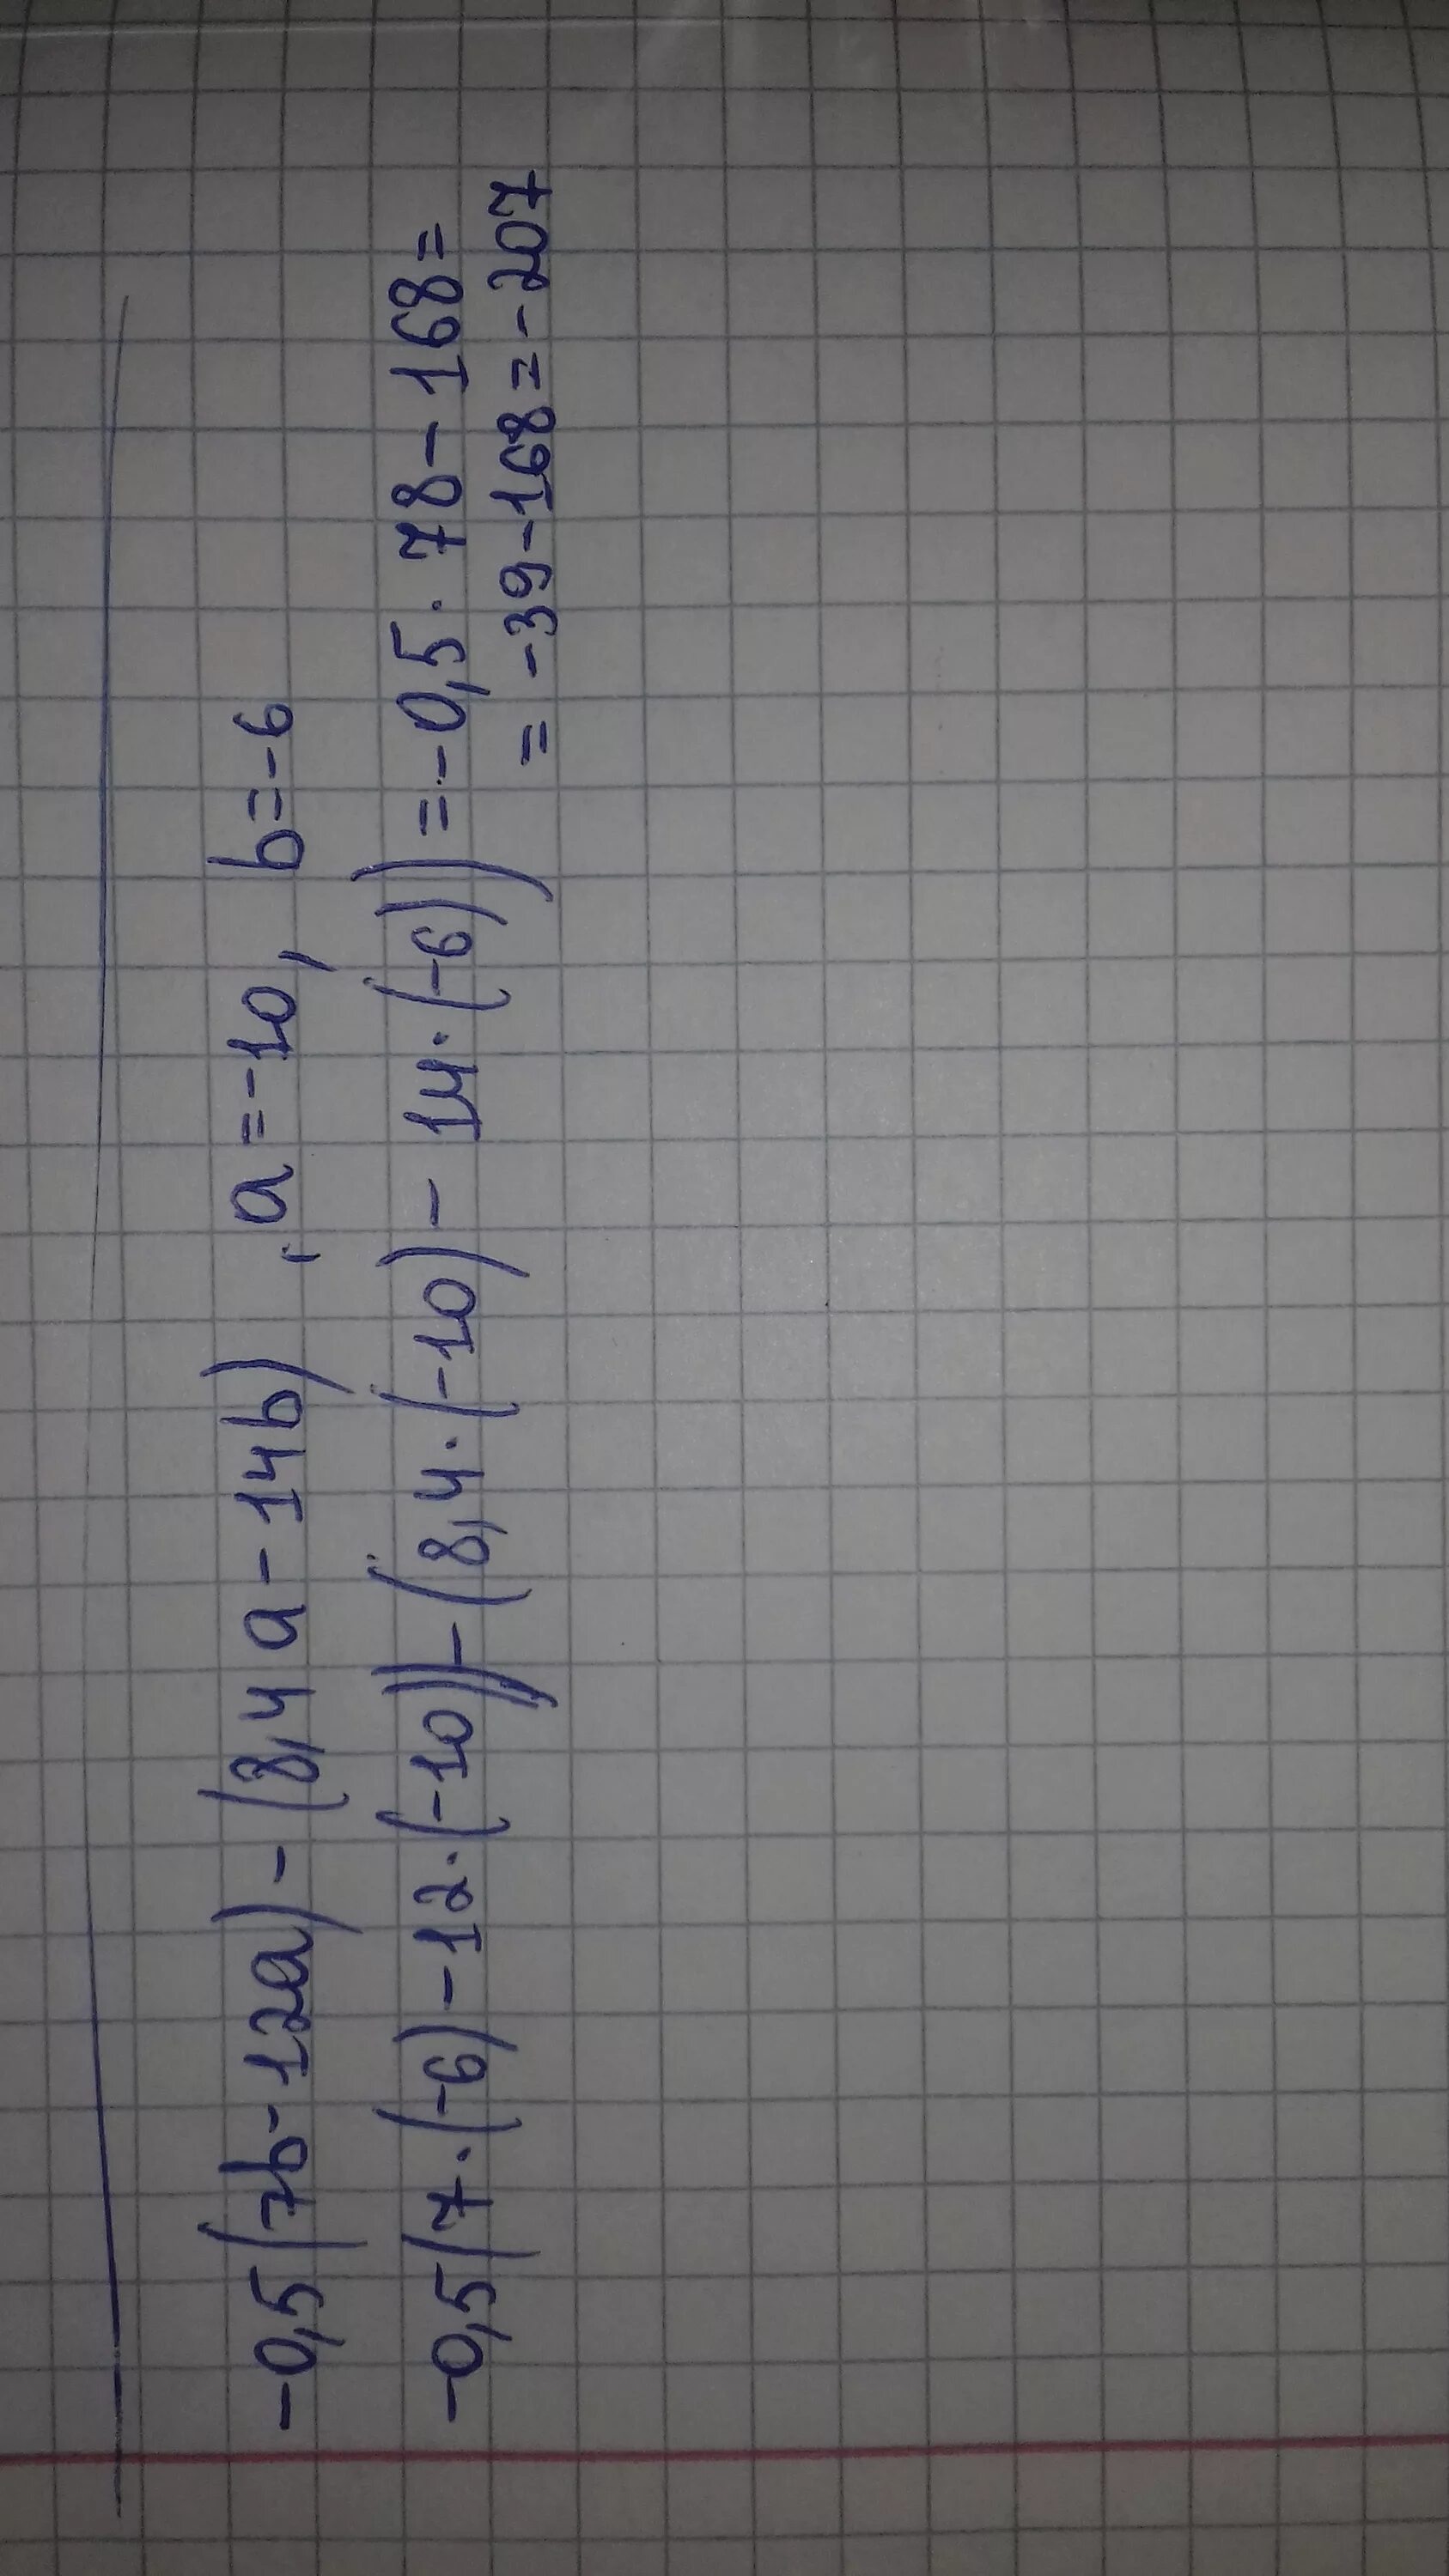 -0,5(7b-12a)-(8,4a-14b) , a=-10, b=-6
-0,5(7·(-6)-12·(-10))-(8,4·(-10)-14·(-6))=-0,5·78-168=
=-39-168=-207